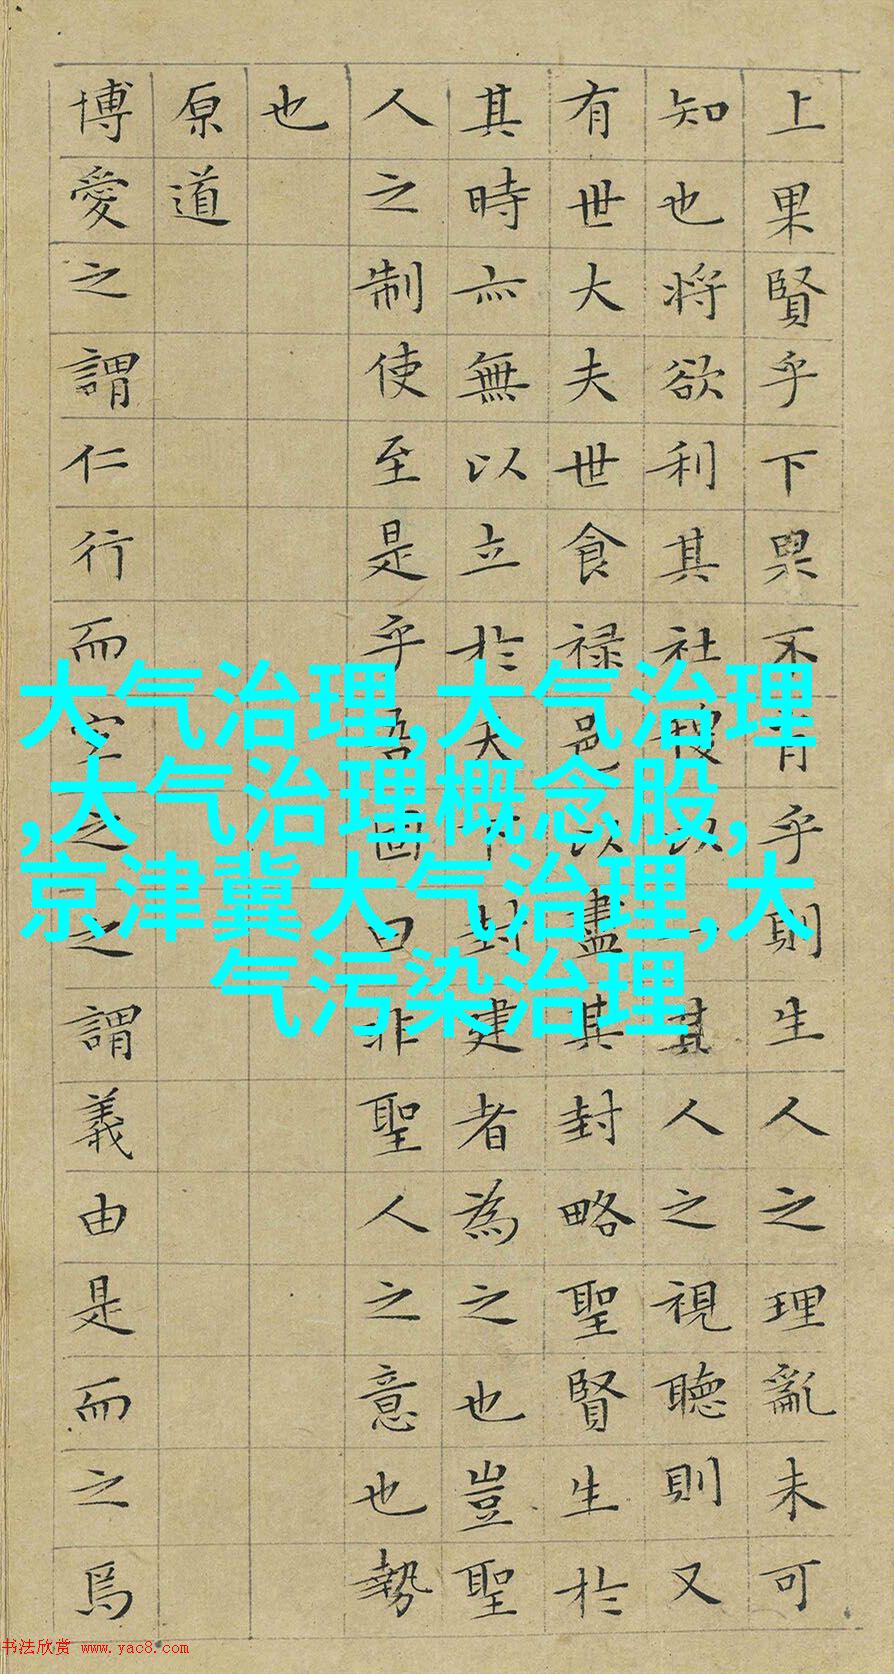 上果賢乎下果不肖乎則生人之理亂未可
知也將欲利其社稷以一其人之視聽則又
有世大夫世食祿邑以盡其封略聖賢生於
其時亦無以立於天下封建者為之也豈聖
人之制使至是乎吾固曰非聖人之意也勢
也
原道
博愛之謂仁行而宜之之謂義由是而之焉
大气治理,大气治理
,大气治理概念股,
京津冀大气治理,大
气污染治理
书法欣赏 www.yac8.com